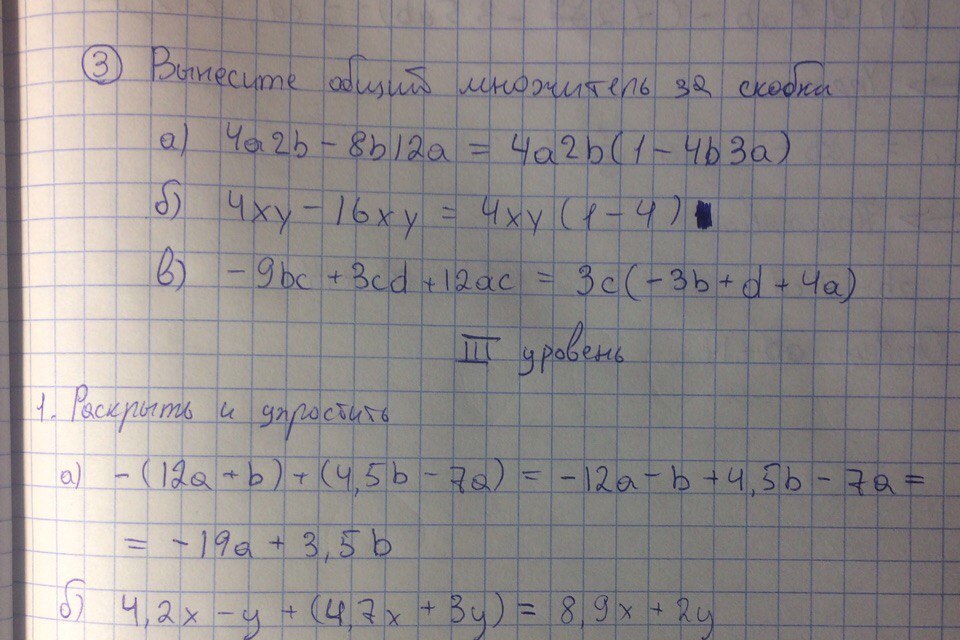 ③ Вынесите общий множитель за скобки
а) 4a2b - 8b12a = 4a2b(1 - 4b3a)
б) 4xy - 16xy = 4xy(1 - 4)
в) -9bc + 3cd + 12ac = 3c(-3b + d + 4a)
III уровень
1. Раскрыть и упростить
а) -(12a + b) + (4,5b - 7a) = -12a - b + 4,5b - 7a =
= -19a + 3,5b
б) 4,2x - y + (4,7x + 3y) = 8,9x + 2y